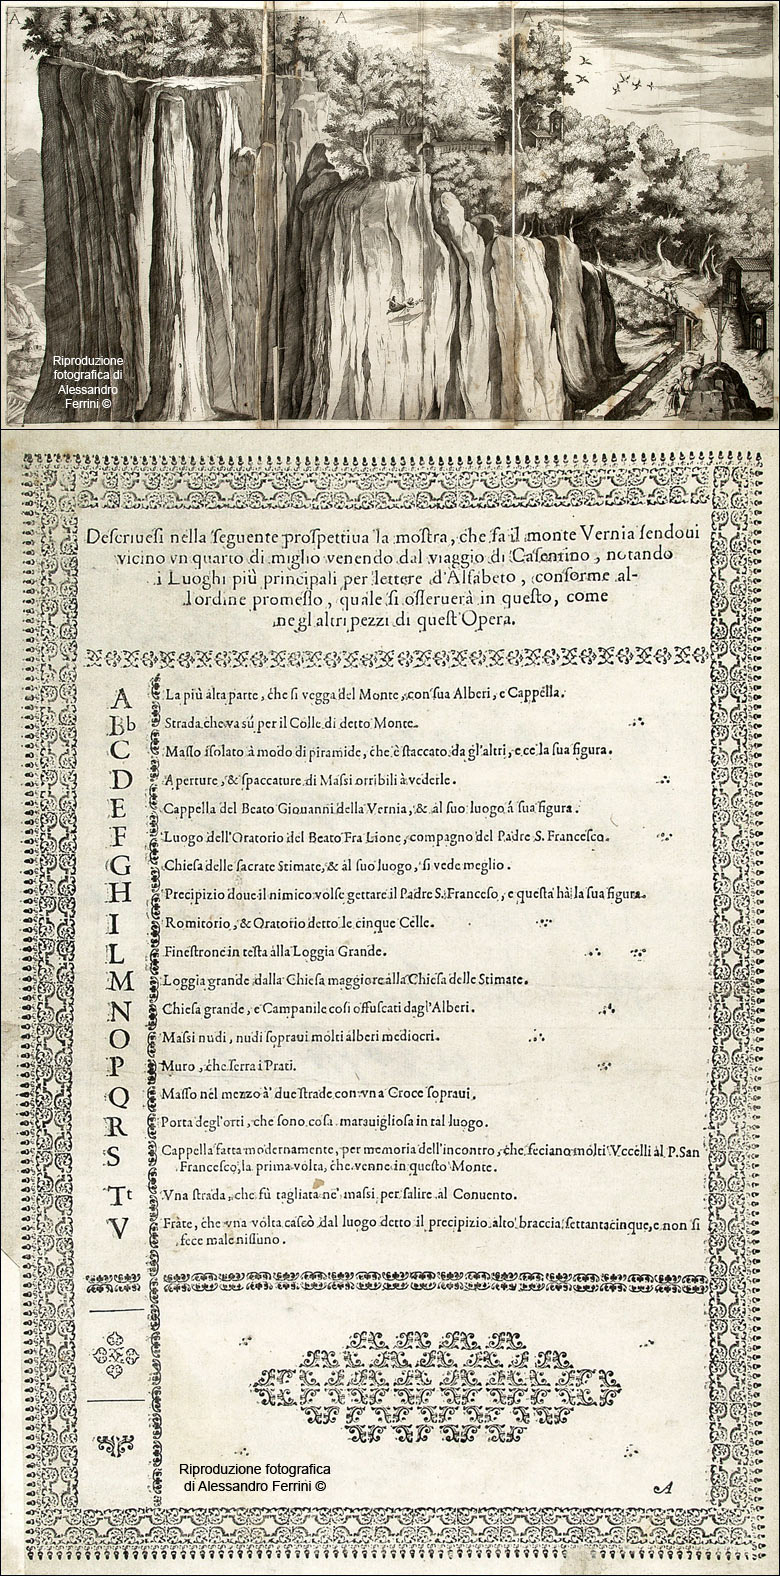 A A A
Riproduzione
fotografica di
Alessandro
Ferrini ©
Deſcriueſi nella ſeguente proſpettiua la moſtra, che fa il monte Vernia ſendoui
vicino vn quarto di miglio venendo dal viaggio di Caſentino, notando
i Luoghi più principali per lettere d'Alfabeto, conforme al-
l'ordine promeſſo, quale ſi oſſeruerà in queſto, come
negl'altri pezzi di queſt'Opera.
A La più alta parte, che ſi vegga del Monte, con ſua Alberi, e Cappella.
Bb Strada che va sù per il Colle di detto Monte.
C Maſſo iſolato à modo di piramide, che è ſtaccato da gl'altri, e ce la ſua figura.
D Aperture, & ſpaccature di Maſſi orribili à vederle.
E Cappella del Beato Giouanni della Vernia, & al ſuo luogo á ſua figura.
F Luogo dell'Oratorio del Beato Fra Lione, compagno del Padre S. Franceſco.
G Chieſa delle ſacrate Stimate, & al ſuo luogo, ſi vede meglio.
H Precipizio doue il nimico volſe gettare il Padre S. Franceſo, e queſta hà la ſua figura.
I Romitorio, & Oratorio detto le cinque Celle.
L Fineſtrone in teſta alla Loggia Grande.
M Loggia grande dalla Chieſa maggiore alla Chieſa delle Stimate.
N Chieſa grande, e Campanile coſi offuſcati dagl'Alberi.
O Maſſi nudi, nudi ſopraui molti alberi mediocri.
P Muro, che ſerra i Prati.
Q Maſſo nel mezzo a' due ſtrade con vna Croce ſopraui,
R Porta degl'orti, che ſono coſa marauiglioſa in tal luogo.
S Cappella fatta modernamente, per memoria dell'incontro, che feciano molti Vccelli al P. San
Franceſco, la prima volta, che venne in queſto Monte.
Tt Vna ſtrada, che fù tagliata ne' maſſi, per ſalire al Conuento.
V Frate, che vna volta caſcò dal luogo detto il precipizio alto braccia ſettantacinque, e non ſi
fece male niſſuno.
Riproduzione fotografica
di Alessandro Ferrini ©
A